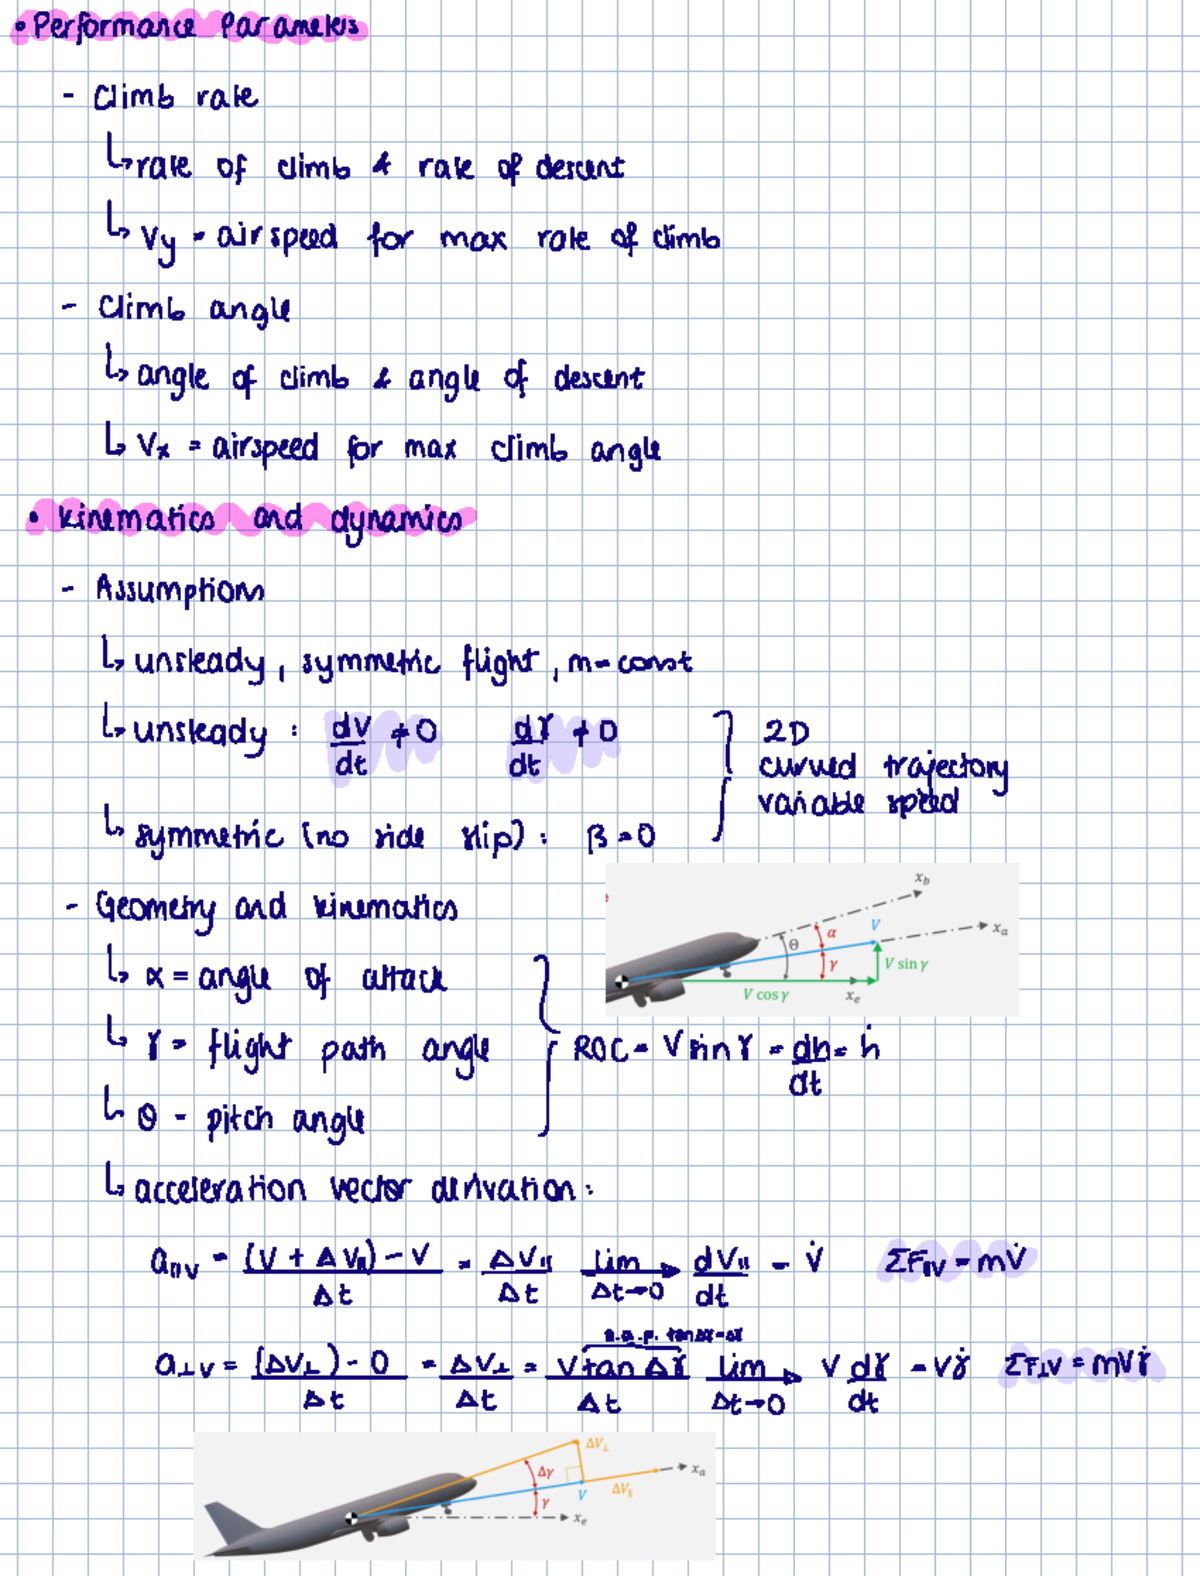 • Performance Parameters
- Climb rate
↳ rate of climb & rate of descent
↳ Vy = airspeed for max rate of climb
- Climb angle
↳ angle of climb & angle of descent
↳ Vx = airspeed for max climb angle
• kinematics and dynamics
- Assumptions
↳ unsteady, symmetric flight, m=const
↳ unsteady : dV/dt ≠ 0 dγ/dt ≠ 0
2D
curved trajectory
variable speed
↳ symmetric (no side slip) : β = 0
- Geometry and kinematics
x_b
x_a
V
α
θ
γ
V sin γ
V cos γ
x_e
↳ α = angle of attack
↳ γ = flight path angle
↳ θ = pitch angle
ROC = V sin γ = dh/dt = ḣ
↳ acceleration vector derivation:
a∥V = (V + ΔV∥) - V / Δt = ΔV∥ / Δt lim Δt→0 → dV∥/dt = V̇ ΣF∥V = mV̇
s.a.p. tanΔγ=Δγ
a⊥V = (ΔV⊥) - 0 / Δt = ΔV⊥ / Δt = V tan Δγ / Δt lim Δt→0 → V dγ/dt = Vγ̇ ΣF⊥V = mVγ̇
ΔV⊥
Δγ
x_a
V
ΔV∥
γ
x_e